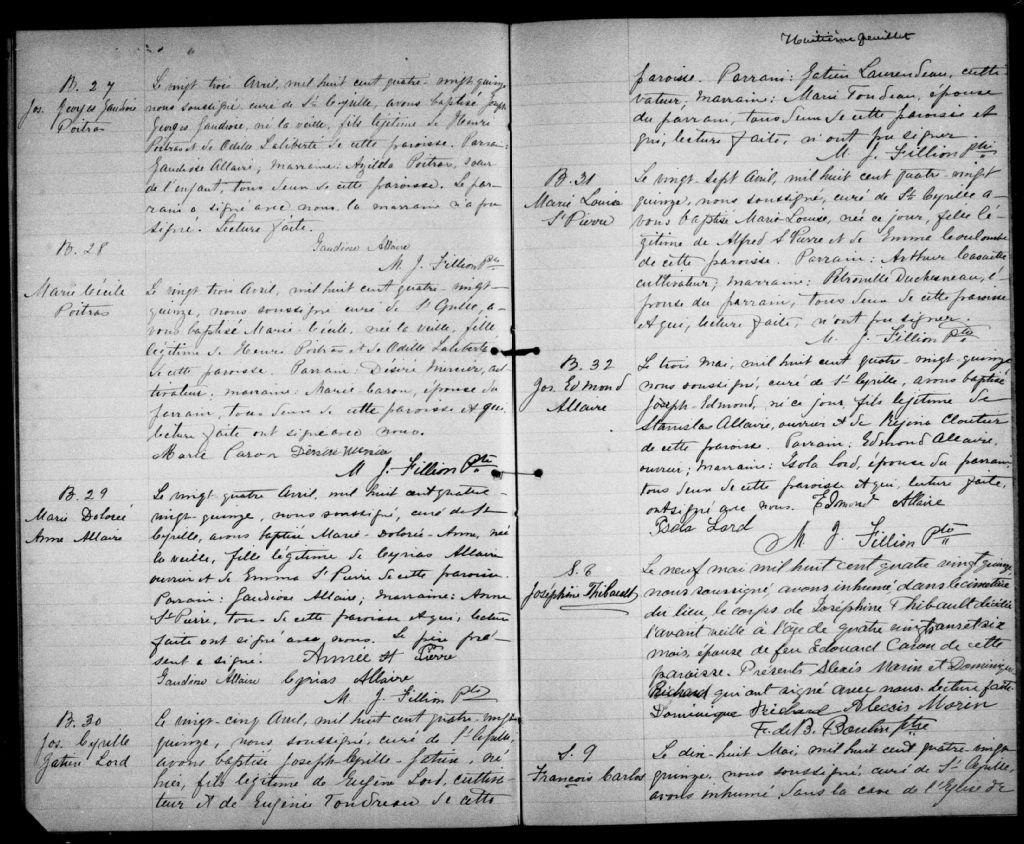 B. 27
Jos. Georges Gaudiose
Poitras
Le vingt trois Avril, mil huit cent quatre-vingt quinze
nous soussigné, curé de St. Cyrille, avons baptisé Joseph
Georges Gaudiose, né la veille, fils légitime de Henri
Poitras et de Odile Laliberté de cette paroisse. Parrain:
Gaudiose Allaire; marraine: Azilda Poitras, soeur
de l'enfant, tous deux de cette paroisse. Le par-
rain a signé avec nous. la marraine n'a pu
signé. Lecture faite.
Gaudiose Allaire
M. J. Fillion Ptre
B. 28
Marie Cécile
Poitras
Le vingt trois Avril, mil huit cent quatre-vingt-
quinze, nous soussigné curé de St Cyrille, a-
vons baptisé Marie-Cécile, née la veille, fille
légitime de Henri Poitras et de Odile Laliberté
de cette paroisse. Parrain, Désiré Mercier, cul-
tivateur; marraine: Marie Caron, épouse du
parrain, tous deux de cette paroisse et qui,
lecture faite ont signé avec nous.
Marie Caron Désiré Mercier
M. J. Fillion Ptre
B. 29
Marie Dolorée
Anne Allaire
Le vingt quatre Avril, mil huit cent quatre-
vingt-quinze, nous soussigné, curé de St
Cyrille, avons baptisé Marie-Dolorée-Anne, née
la veille, fille légitime de Cyrias Allaire
ouvrier et de Emma St Pierre de cette paroisse.
Parrain: Gaudiose Allaire; marraine: Anne
St Pierre, tous de cette paroisse et qui, lecture
faite ont signé avec nous. Le père pré-
sent a signé. Année St Pierre
Gaudiose Allaire Cyrias Allaire
M. J. Fillion Ptre
B. 30
Jos. Cyrille
Gatien Lord
Le vingt-cinq Avril, mil huit cent quatre-vingt
quinze, nous, soussigné, curé de St Cyrille,
avons baptisé Joseph-Cyrille-Gatien, né
hier, fils légitime de Eugène Lord, cultiva-
teur et de Eugénie Tondreau de cette
Huitième feuillet
paroisse. Parrain: Gatien Laurendeau, culti-
vateur; marraine: Marie Tondreau, épouse
du parrain, tous deux de cette paroisse et
qui, lecture faite, n'ont pu signer.
M. J. Fillion Ptre
B. 31
Marie Louise
St Pierre
Le vingt-sept Avril, mil huit cent quatre-vingt
quinze, nous soussigné, curé de St. Cyrille a-
vons baptisé Marie Louise, née ce jour, fille lé-
gitime de Alfred St Pierre et de Emma Coulombe
de cette paroisse. Parrain: Arthur
cultivateur; marraine: Pétronille Duchesneau, é-
pouse du parrain, tous deux de cette paroisse
et qui, lecture faite, n'ont pu signer.
M. J. Fillion Ptre
B. 32
Jos. Edmond
Allaire
Le trois mai, mil huit cent quatre-vingt-quinze
nous soussigné, curé de St Cyrille, avons baptisé
Joseph-Edmond, né ce jour, fils légitime de
Stanislas Allaire, ouvrier et de Réjona Cloutier
de cette paroisse. Parrain: Edmond Allaire,
ouvrier; marraine: Esola Lord, épouse du parrain,
tous deux de cette paroisse et qui, lecture faite,
ont signé avec nous. Edmond Allaire
Esola Lord
M. J. Fillion Ptre
S. 8
Joséphine Thibault
Le neuf mai mil huit cent quatre vingt quinze
nous soussigné, avons inhumé, dans le cimetière
du lieu, le corps de Joséphine Thibault décédée
l'avant veille à l'âge de quatre vingt ans et six
mois, épouse de feu Edouard Caron de cette
paroisse. Présents Alexis Morin et Dominique
Richard qui ont signé avec nous. Lecture faite
Dominique Richard Alexis Morin
F. de B. Boutin Ptre
S. 9
François Carlos
Le dix-huit Mai, mil huit cent quatre-vingt
quinze, nous soussigné, curé de St Cyrille,
avons inhumé dans la cave de l'Eglise de